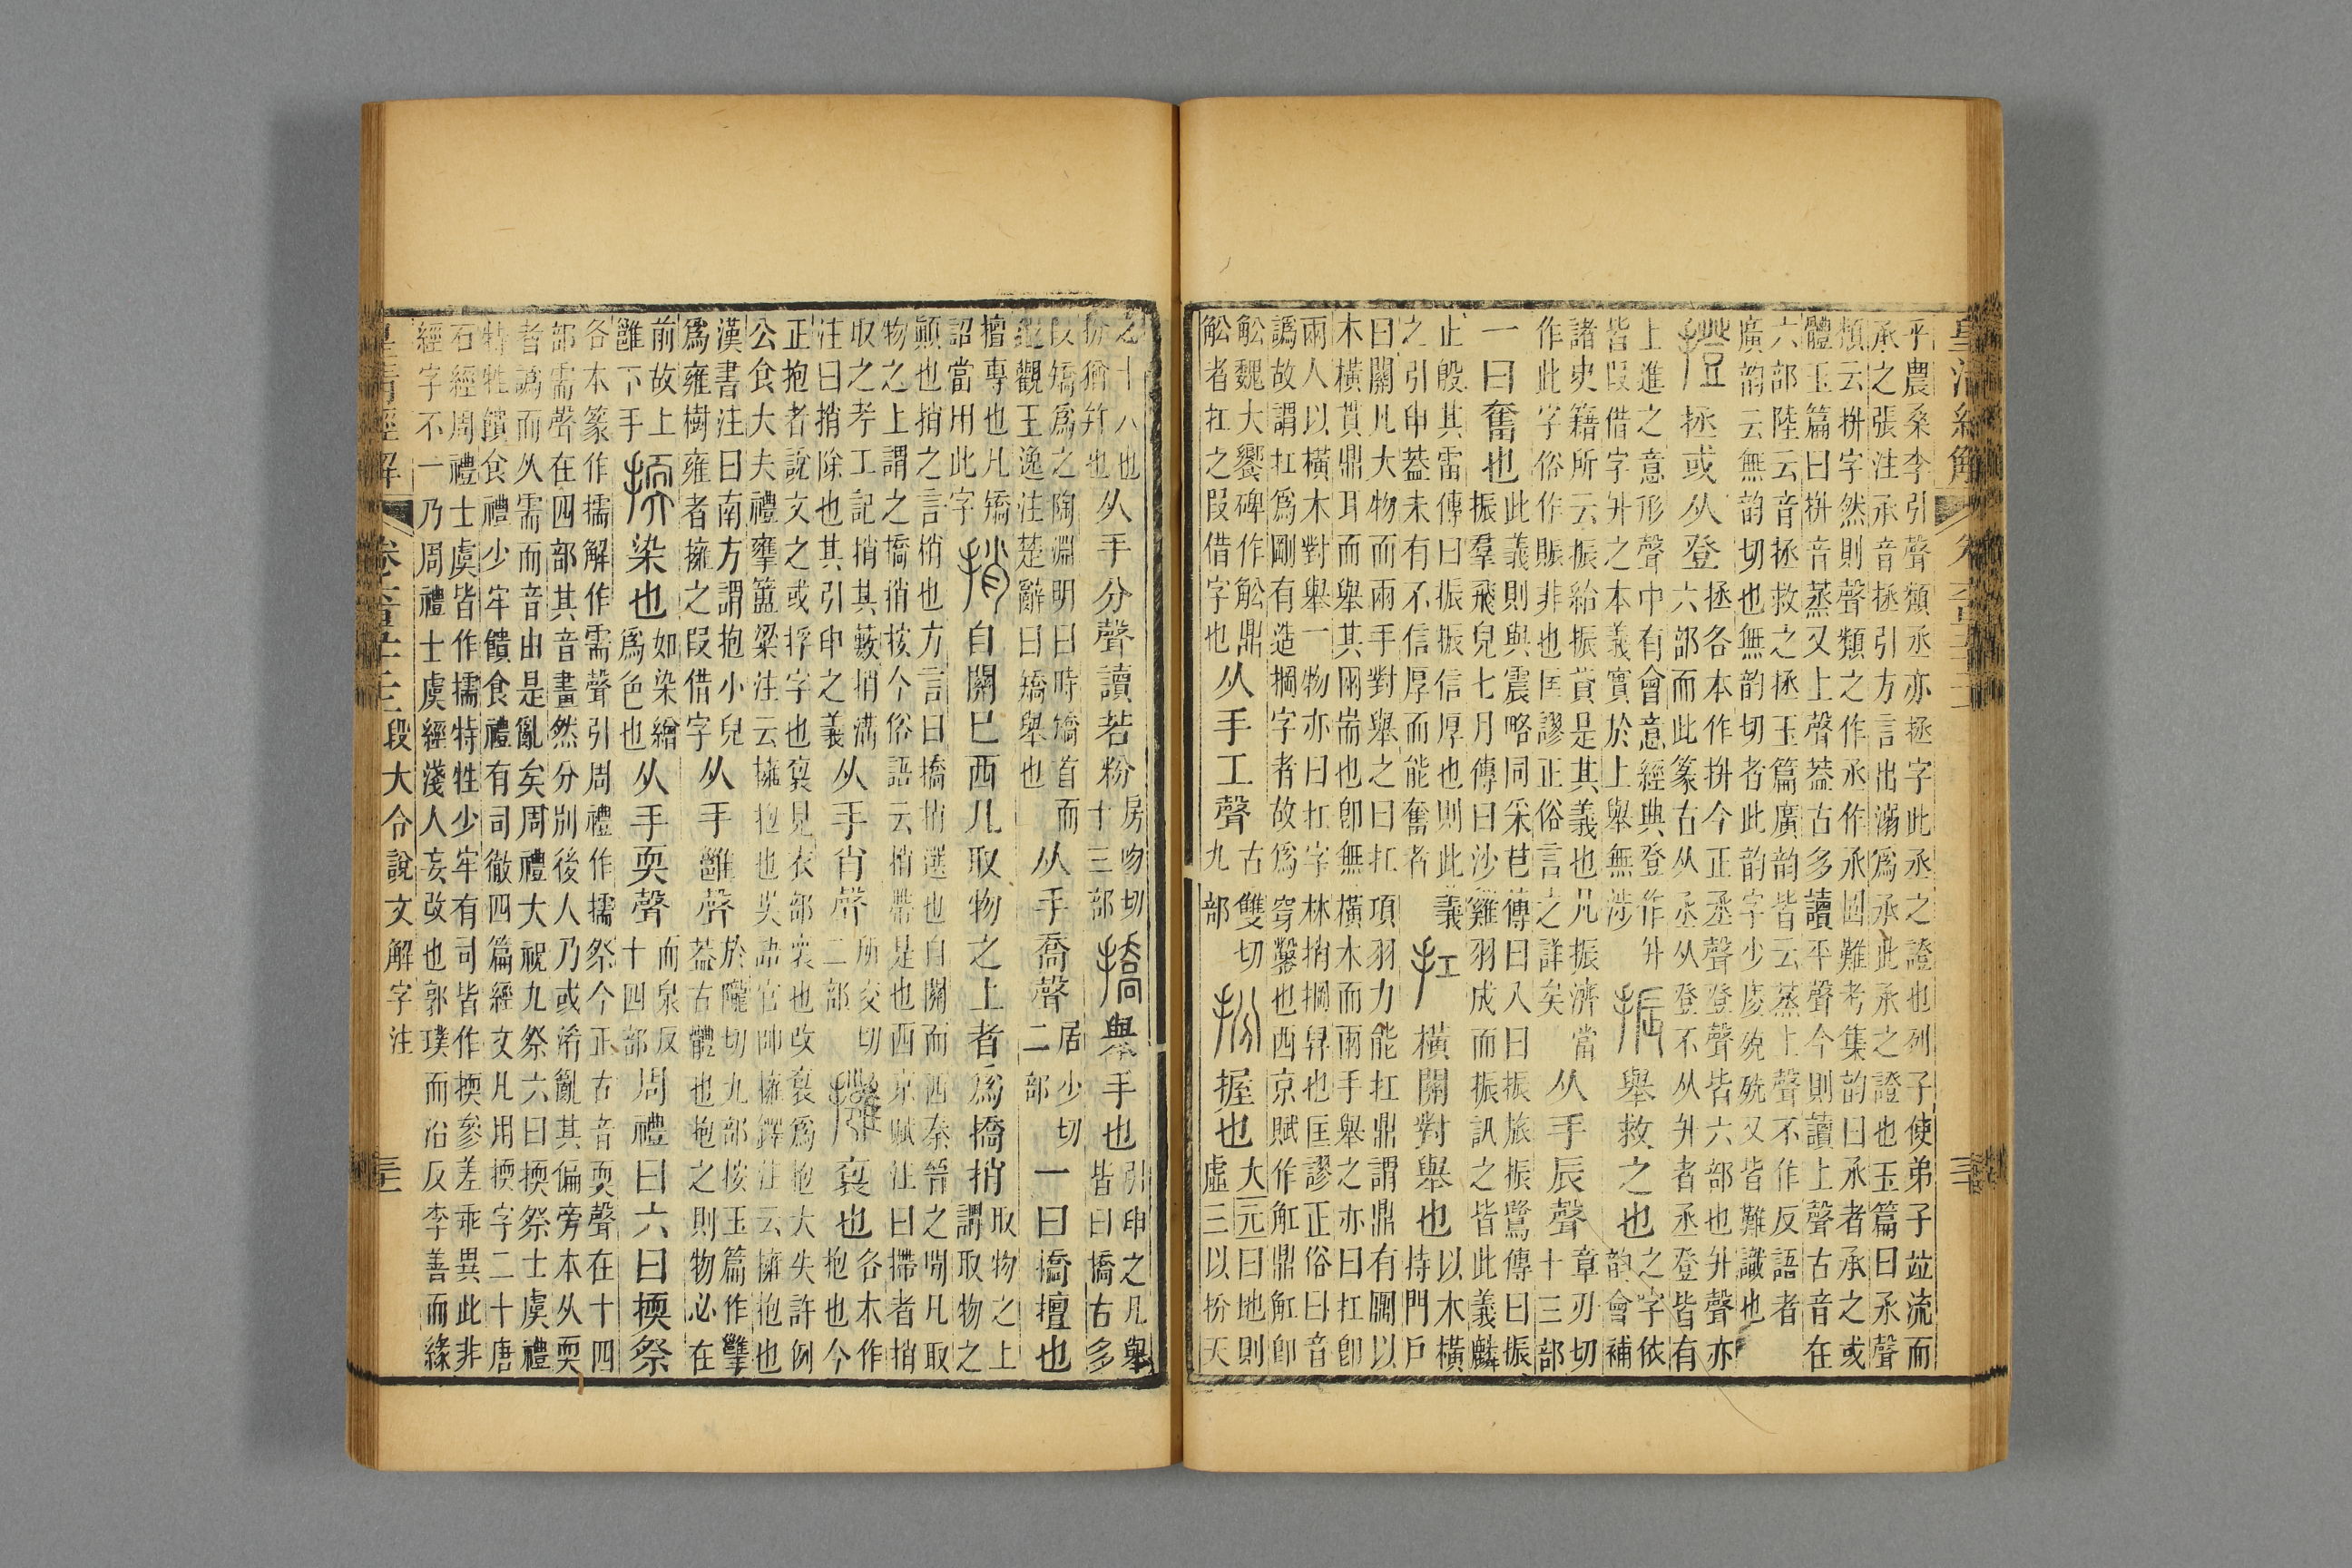 乎農桑李引聲類丞亦拯字此丞之證也列子使弟子竝流而
承之張注承音拯引方言出溺爲承此承之證也玉篇曰承聲
類云拼字然則聲類之作丞作承固難考集韵曰承者承之或
體玉篇曰拼音蒸又上聲葢古多讀平聲今則讀上聲古音在
六部陸云音拯救之拯玉篇廣韵皆云蒸上聲不作反語者
廣韵云無韵切也無韵切者此韵字少庱殑殑又皆難識也
撜拯或从登
拯各本作拼今正丞聲登聲皆六部也升聲亦
六部而此篆古从丞从登不从升者丞登皆有
上進之意形聲中有會意經典登作升
皆叚借字升之本義實於上舉無涉
振舉救之也
之字依
韵會補
諸史籍所云振給振貸是其義也凡振濟當
作此字俗作賑非也匡謬正俗言之詳矣
从手辰聲
章刃切
十三部
一曰奮也
此義則與震略同采芑傳曰入曰振旅振鷺傳曰振
振羣飛皃七月傳曰沙雞羽成而振訊之皆此義麟
止殷其雷傳曰振振信厚也則此義
之引申葢未有不信厚而能奮者
扛橫關對舉也
以木橫
持門戶
曰關凡大物而兩手對舉之曰扛項羽力能扛鼎謂鼎有關以
木橫貫鼎耳而舉其兩耑也卽無橫木而兩手舉之亦曰扛卽
兩人以橫木對舉一物亦曰扛字林捎掆舁也匡謬正俗曰音
譌故謂扛爲剛有造掆字者故爲穿鑿也西京賦作舡鼎舡卽
舩魏大饗碑作舩鼎
舩者扛之叚借字也
从手工聲
古雙切
九部
扮握也
大元曰地則
虛三以扮天
之十八也
扮猶幷也
从手分聲讀若粉
房吻切
十三部
撟舉手也
引申之凡舉
皆曰撟古多
叚矯爲之陶淵明曰時矯首而
遐觀王逸注楚辭曰矯舉也
从手喬聲
居少切
二部
一曰撟擅也
擅專也凡矯
詔當用此字
捎自關已西凡取物之上者爲撟捎
取物之上
謂取物之
顚也捎之言梢也方言曰撟捎選也自關而西秦晉之閒凡取
物之上謂之撟捎按今俗語云捎帶是也西京賦注曰摕者捎
取之考工記捎其藪捎溝
注曰捎除也其引申之義
从手肖聲
所交切
二部
擁裒也
各本作
抱也今
正抱者說文之或捊字也裒見衣部裒也攺裒爲抱大失許例
公食大夫禮擁簠梁注云擁抱也吳語官帥擁鐸注云擁抱也
漢書注曰南方謂抱小兒
爲雍樹雍者擁之叚借字
从手雝聲
於隴切九部按玉篇作㩴
葢古體也抱之則物必在
前故上
雝下手
㨎染也
如染繒
爲色也
从手耎聲
而泉反
十四部
周禮曰六曰㨎祭
各本篆作擩解作需聲引周禮作擩祭今正古音耎聲在十四
部需聲在四部其音畫然分別後人乃或淆亂其偏旁本从耎
者譌而从需而音由是亂矣周禮大祝九祭六曰㨎祭士虞禮
特牲饋食禮少牢饋食禮有司徹四篇經文凡用㨎字二十唐
石經周禮士虞皆作擩特牲少牢有司皆作㨎參差乖異此非
經字不一乃周禮士虞經淺人妄攺也郭璞而沿反李善而緣
皇清經解
段大令說文解字注